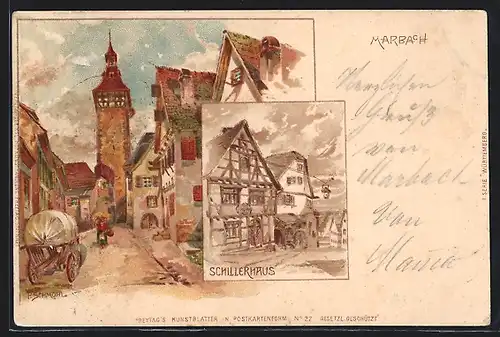 MARBACH
Herzlichen
Gruß
von
Marbach.
Von
SCHILLERHAUS
I. SERIE "WÜRTTEMBERG".
"FREYTAG'S KUNSTBLÄTTER IN POSTKARTENFORM" No 22 GESETZL. GESCHÜTZT